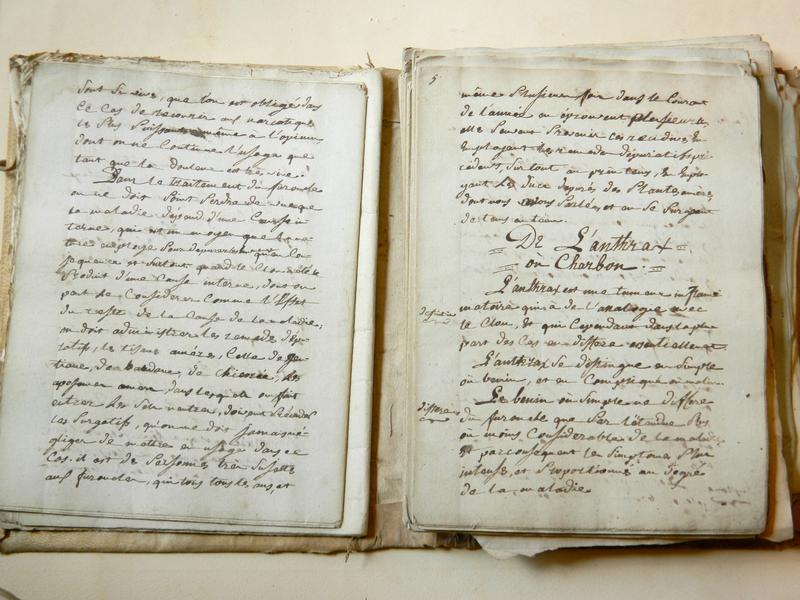 sont si vives, que l'on est obligé dans
ce cas de recourir aux narcotiques
les plus puissants même à l'opium,
dont on ne continue l'usage que
tant que la douleur est très vive.
Dans le traitement du furoncle
on ne doit point perdre de vue que
la maladie dépend d'une cause in
terne, qui est un moyen que la na
ture employe pour
quand le Clou a été
produit d'une cause interne, dont on
part de considerer comme l'effet
du reste de la Cause de la maladie;
on doit administrer les remede dépu
ratifs, les tisane amères, Celle de gen
tiane, de bardane, de chicorée, les
apozemes amers, dans lesquels on fait
entrer les sels neutres, doivent préceder
les purgatifs, qu'on ne doit jamais né
gliger de mettre en usage dans ce
Cas. il est de personnes tres sujettes
aux furoncles, qui tous les ans, et
5
même plusieurs fois dans le Courant
de l'année en éprouvent plusieurs,
elles peuvent prevenir ces recidives En
Employant les remede dépuratifs pré
cédents, sur tout au printems, En Emplo
yant le suc depurés des Plantes amères,
dont nous avons parlés, et en se purgeant
de tems en tems.
De L'anthrax
où Charbon.
définition
L'anthrax est une tumeur inflam
matoire qui a de l'analogie avec
le Clou, et qui Cependant dans la plus
part des Cas en differe essentiellement
L'anthrax se distingue en simple
où benin, et en Compliqué où malin.
différence
Le benin où simple ne differe
du furoncle que par l'étendue plus
où moins Considerable de la maladie
Et par consequent les simptomes plus
intense, et proportionné au degré
de la maladie.